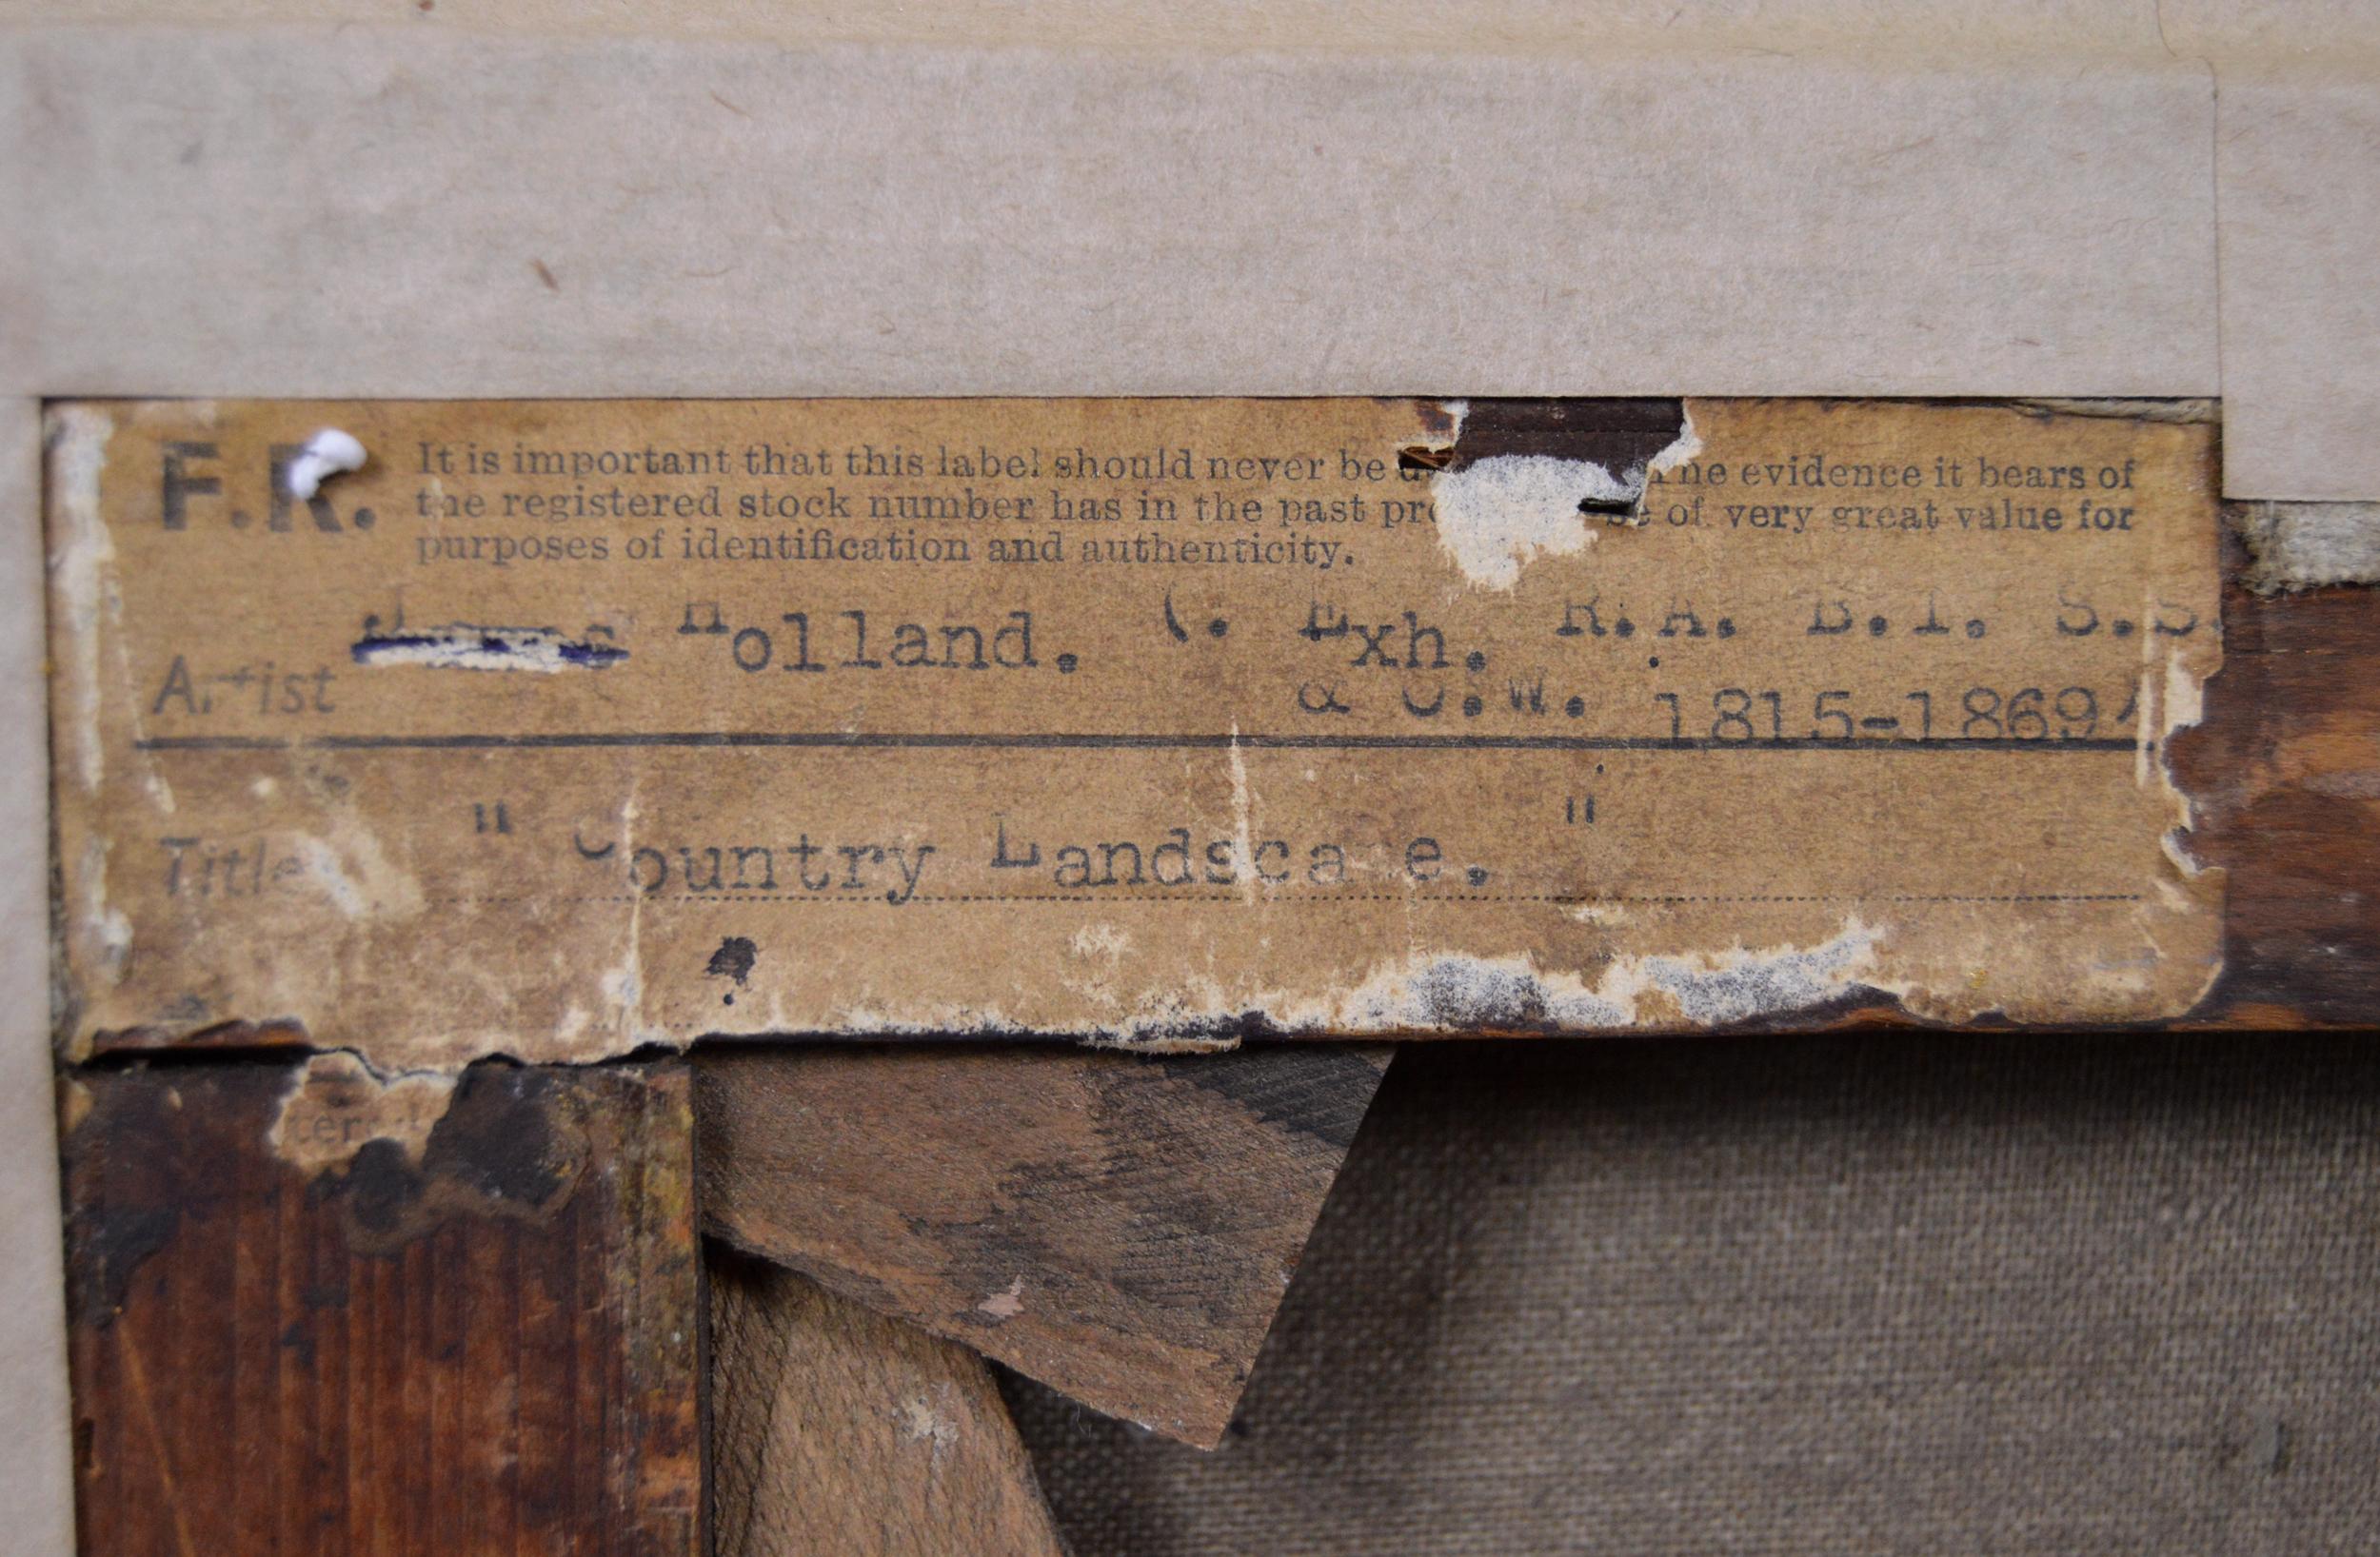 F.R.
It is important that this label should never be The evidence it bears of
the registered stock number has in the past of very great value for
purposes of identification and authenticity.
Artist Holland. (. Exh. R.A. B.I. S.S.
& O.W. 1815-1869)
Title " Country Landscape. "